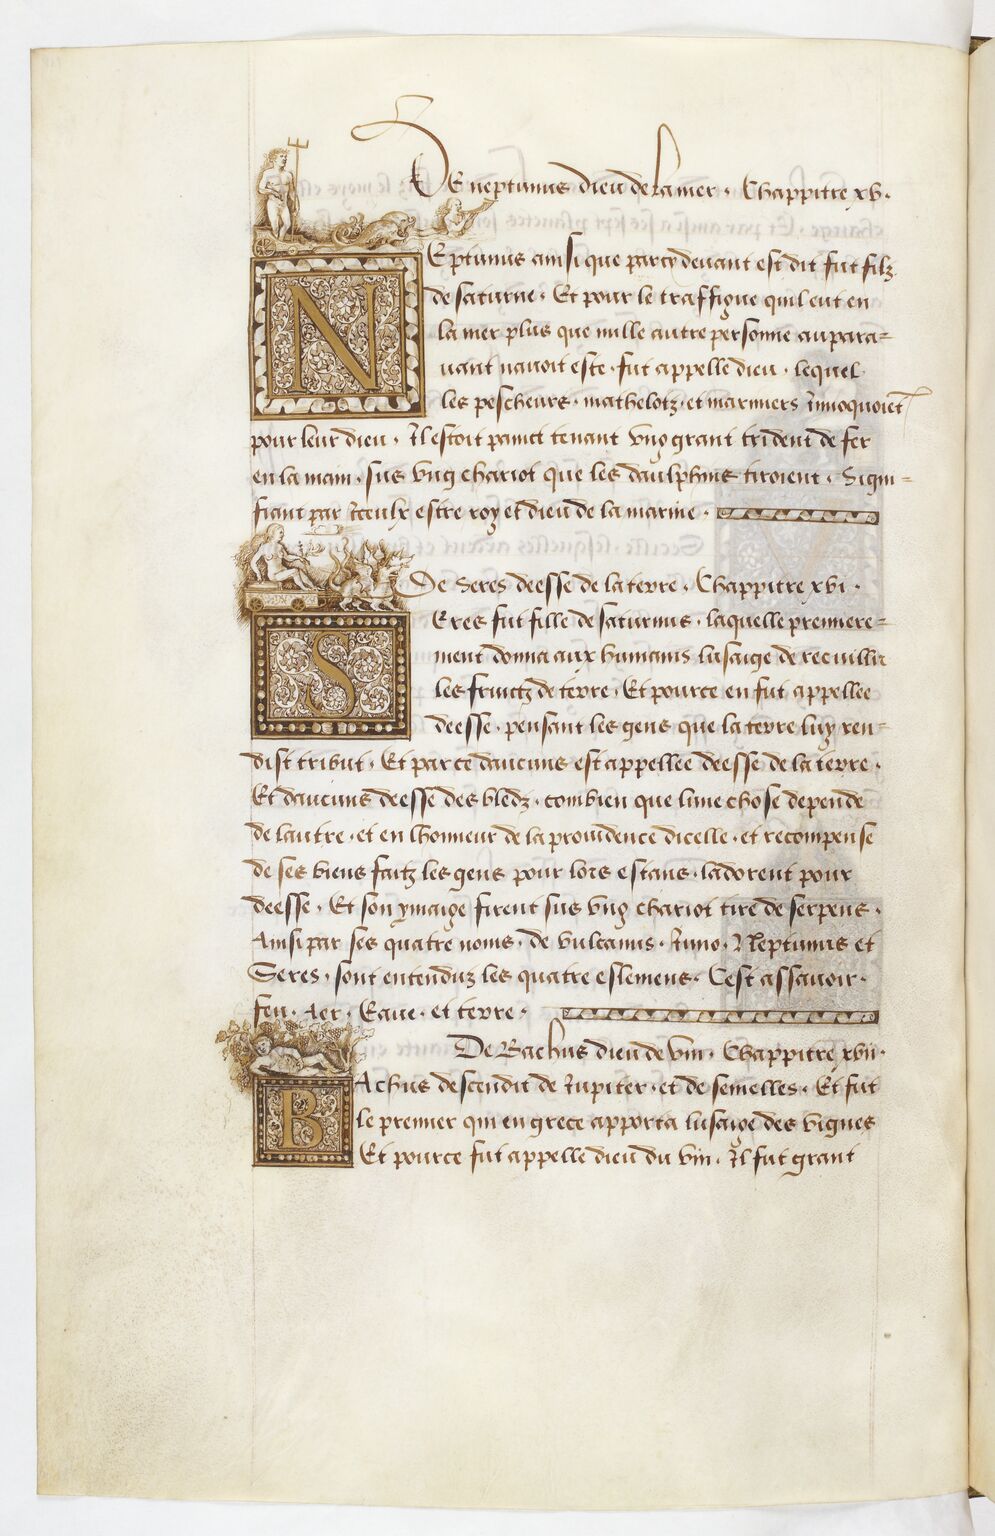 DE neptunus dieu de la mer · Chappitre xv ·
NEptunus ainsi que parcy deuant est dit fut filz
de saturne · Et pour le traffigue quil eut en
la mer plus que nulle autre personne aupara=
uant nauoit este · fut appelle dieu · lequel
les pescheurs · mathelotz · et mariniers Inuoquoient
pour leur dieu · Il estoit painct tenant vng grant trident de fer
en la main · sus vng chariot que les daulphins tiroient · Signi=
fiant par Iceulx estre roy et dieu de la marine ·
De Seres deesse de la terre · Chappitre xvi ·
SEres fut fille de saturnus · laquelle premiere=
ment donna aux humains lusaige de recuillir
les fruictz de terre · Et pource en fut appellee
deesse · pensant les gens que la terre luy ren=
dist tribut · Et par ce daucuns est appellee deesse de la terre ·
Et daucuns deesse des bledz · combien que lune chose depende
de lautre · et en lhonneur de la prouidence dicelle · et recompense
de ses biens faitz les gens pour lors estans · ladorent pour
deesse · Et son ymaige firent sus vng chariot tire de serpens ·
Ainsi par ses quatre noms · de vulcanus · Iuno · Neptunus et
Seres · sont entenduz les quatre eslemens · Cest assauoir ·
feu · Aer · Eaue · et terre ·
De Bachus dieu de vin · Chappitre xvii ·
BAchus descendit de Iupiter · et de semelles · Et fut
le premier qui en grece apporta lusaige des vignes
Et pource fut appelle dieu du vin · Il fut grant